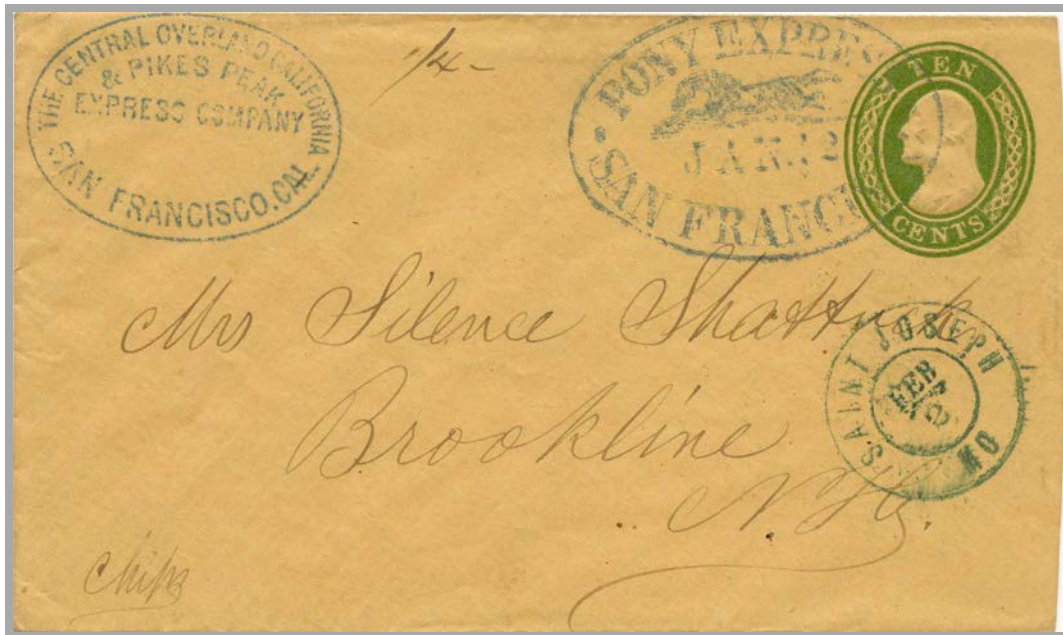 THE CENTRAL OVERLAND CALIFORNIA
& PIKES PEAK
EXPRESS COMPANY
SAN FRANCISCO.CAL.
1/4-
PONY EXPRESS
JAN.12
SAN FRANCI
TEN
CENTS
Mrs Silence Shattuck
Brookline
N. H.
SAINT JOSEPH
FEB
2
MO